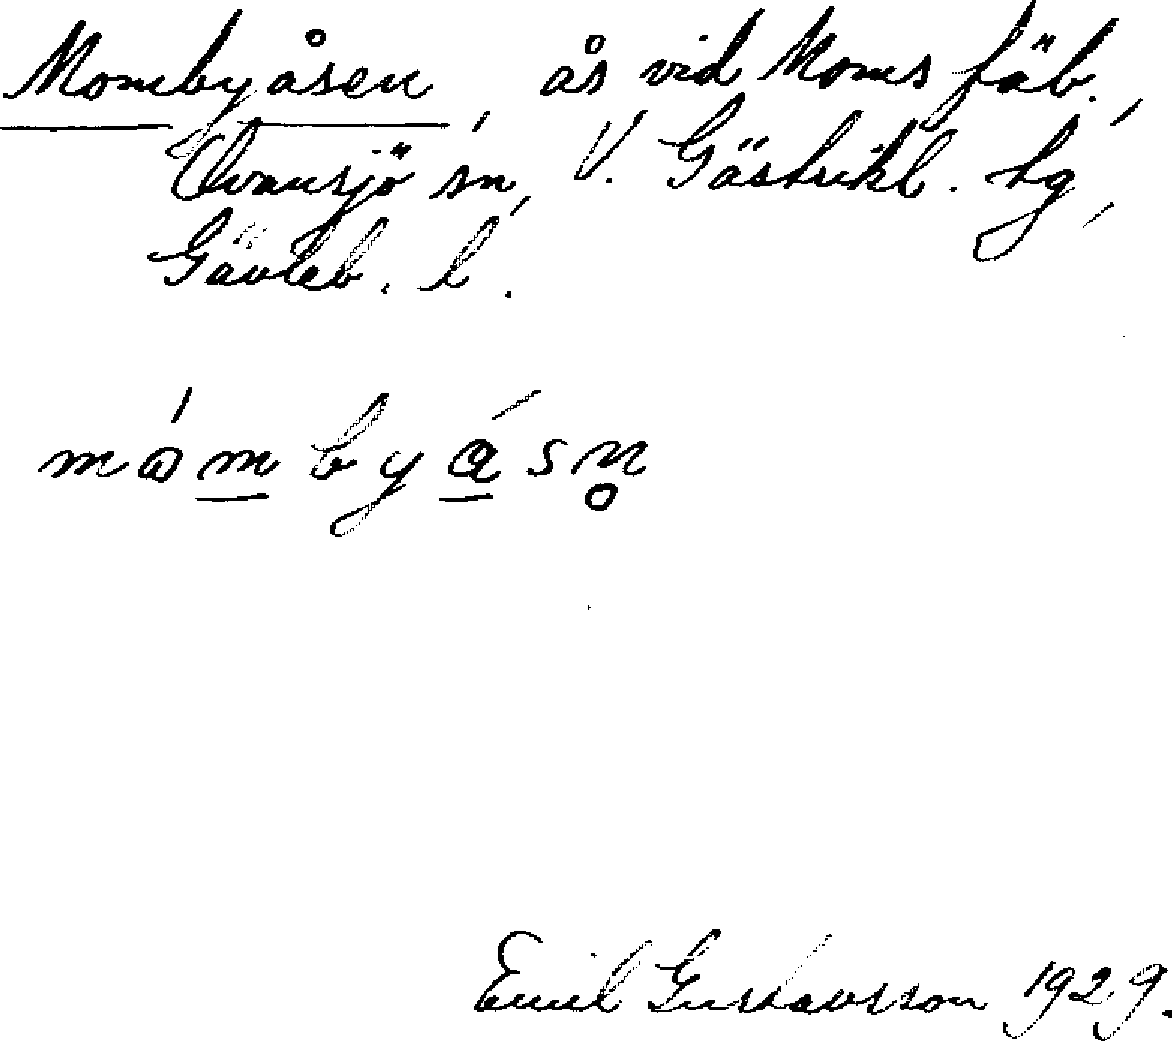 Mombyåsen, ås vid Moms fäb.,
Ovansjö sn, V. Gästrikl. tg,
Gävleb. l.
mómbyásn̥
Emil Gustavsson 1929.